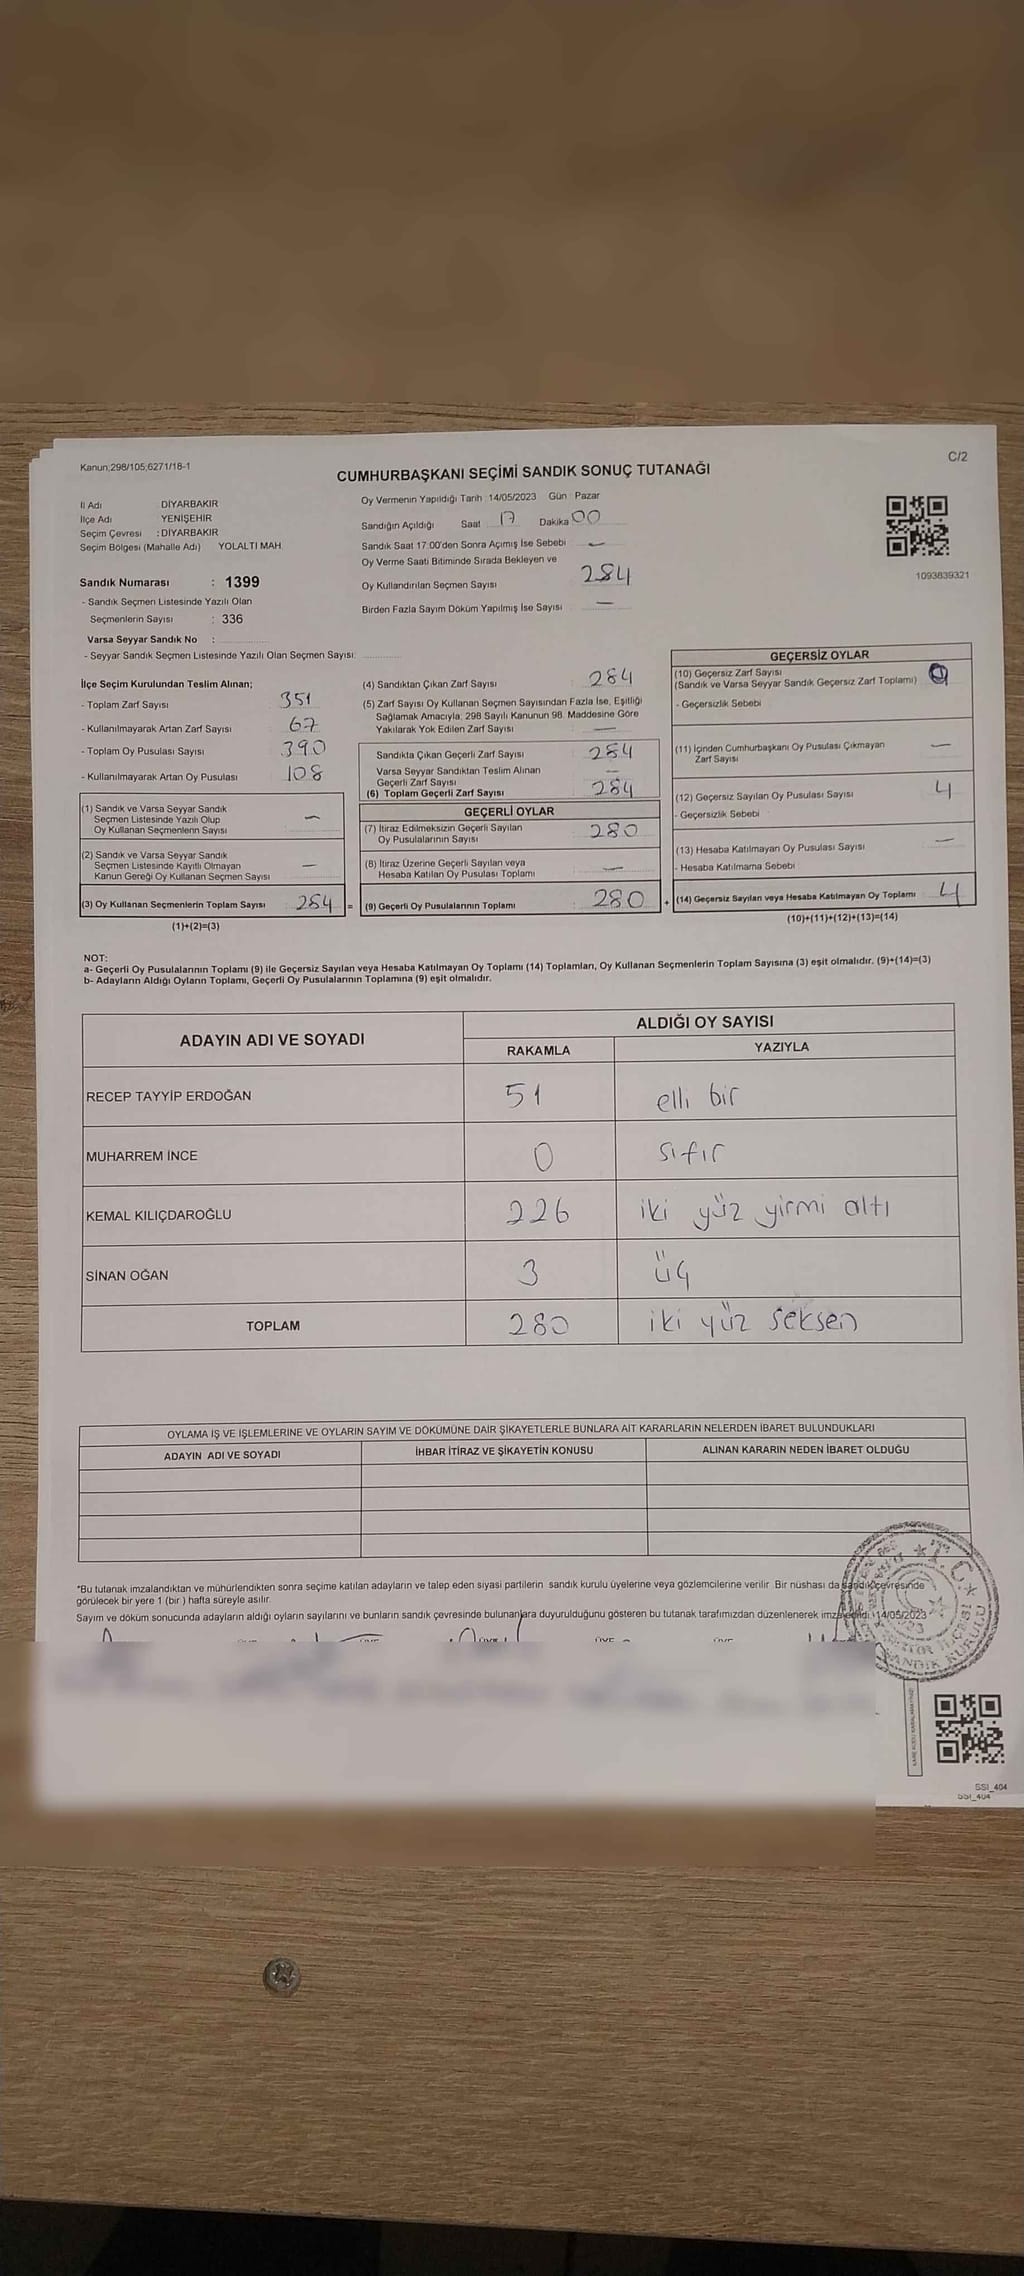 Kanun;298/105;6271/18-1
C/2
CUMHURBAŞKANI SEÇİMİ SANDIK SONUÇ TUTANAĞI
İl Adı DİYARBAKIR
İlçe Adı YENİŞEHİR
Seçim Çevresi : DİYARBAKIR
Seçim Bölgesi (Mahalle Adı) YOLALTI MAH.
Sandık Numarası : 1399
- Sandık Seçmen Listesinde Yazılı Olan
Seçmenlerin Sayısı : 336
Varsa Seyyar Sandık No :
- Seyyar Sandık Seçmen Listesinde Yazılı Olan Seçmen Sayısı:
Oy Vermenin Yapıldığı Tarih : 14/05/2023 Gün : Pazar
Sandığın Açıldığı Saat 17 Dakika 00
Sandık Saat 17:00'den Sonra Açımış İse Sebebi —
Oy Verme Saati Bitiminde Sırada Bekleyen ve
Oy Kullandırılan Seçmen Sayısı 284
Birden Fazla Sayım Döküm Yapılmış İse Sayısı —
1093839321
İlçe Seçim Kurulundan Teslim Alınan;
- Toplam Zarf Sayısı 351
- Kullanılmayarak Artan Zarf Sayısı : 67
- Toplam Oy Pusulası Sayısı : 390
- Kullanılmayarak Artan Oy Pusulası : 108
(1) Sandık ve Varsa Seyyar Sandık
Seçmen Listesinde Yazılı Olup
Oy Kullanan Seçmenlerin Sayısı : —
(2) Sandık ve Varsa Seyyar Sandık
Seçmen Listesinde Kayıtlı Olmayan
Kanun Gereği Oy Kullanan Seçmen Sayısı : —
(3) Oy Kullanan Seçmenlerin Toplam Sayısı : 284 =
(1)+(2)=(3)
(4) Sandıktan Çıkan Zarf Sayısı : 284
(5) Zarf Sayısı Oy Kullanan Seçmen Sayısından Fazla İse, Eşitliği
Sağlamak Amacıyla; 298 Sayılı Kanunun 98. Maddesine Göre
Yakılarak Yok Edilen Zarf Sayısı : —
Sandıkta Çıkan Geçerli Zarf Sayısı : 284
Varsa Seyyar Sandıktan Teslim Alınan
Geçerli Zarf Sayısı —
(6) Toplam Geçerli Zarf Sayısı : 284
GEÇERLİ OYLAR
(7) İtiraz Edilmeksizin Geçerli Sayılan
Oy Pusulalarının Sayısı : 280
(8) İtiraz Üzerine Geçerli Sayılan veya
Hesaba Katılan Oy Pusulası Toplamı : —
(9) Geçerli Oy Pusulalarının Toplamı : 280 +
GEÇERSİZ OYLAR
(10) Geçersiz Zarf Sayısı
(Sandık ve Varsa Seyyar Sandık Geçersiz Zarf Toplamı)
- Geçersizlik Sebebi
(11) İçinden Cumhurbaşkanı Oy Pusulası Çıkmayan
Zarf Sayısı —
(12) Geçersiz Sayılan Oy Pusulası Sayısı 4
- Geçersizlik Sebebi
(13) Hesaba Katılmayan Oy Pusulası Sayısı —
- Hesaba Katılmama Sebebi
(14) Geçersiz Sayılan veya Hesaba Katılmayan Oy Toplamı 4
(10)+(11)+(12)+(13)=(14)
NOT:
a- Geçerli Oy Pusulalarının Toplamı (9) ile Geçersiz Sayılan veya Hesaba Katılmayan Oy Toplamı (14) Toplamları, Oy Kullanan Seçmenlerin Toplam Sayısına (3) eşit olmalıdır. (9)+(14)=(3)
b- Adayların Aldığı Oyların Toplamı, Geçerli Oy Pusulalarının Toplamına (9) eşit olmalıdır.
ADAYIN ADI VE SOYADI
ALDIĞI OY SAYISI
RAKAMLA YAZIYLA
RECEP TAYYİP ERDOĞAN 51 elli bir
MUHARREM İNCE 0 sıfır
KEMAL KILIÇDAROĞLU 226 iki yüz yirmi altı
SİNAN OĞAN 3 üç
TOPLAM 280 iki yüz seksen
OYLAMA İŞ VE İŞLEMLERİNE VE OYLARIN SAYIM VE DÖKÜMÜNE DAİR ŞİKAYETLERLE BUNLARA AİT KARARLARIN NELERDEN İBARET BULUNDUKLARI
ADAYIN ADI VE SOYADI İHBAR İTİRAZ VE ŞİKAYETİN KONUSU ALINAN KARARIN NEDEN İBARET OLDUĞU
*Bu tutanak imzalandıktan ve mühürlendikten sonra seçime katılan adayların ve talep eden siyasi partilerin sandık kurulu üyelerine veya gözlemcilerine verilir. Bir nüshası da sandık çevresinde
görülecek bir yere 1 (bir ) hafta süreyle asılır.
Sayım ve döküm sonucunda adayların aldığı oyların sayılarını ve bunların sandık çevresinde bulunanlara duyurulduğunu gösteren bu tutanak tarafımızdan düzenlenerek imza edildi. 14/05/2023
T.C.
SANDIK KURULU
SSI_404
SSI_404